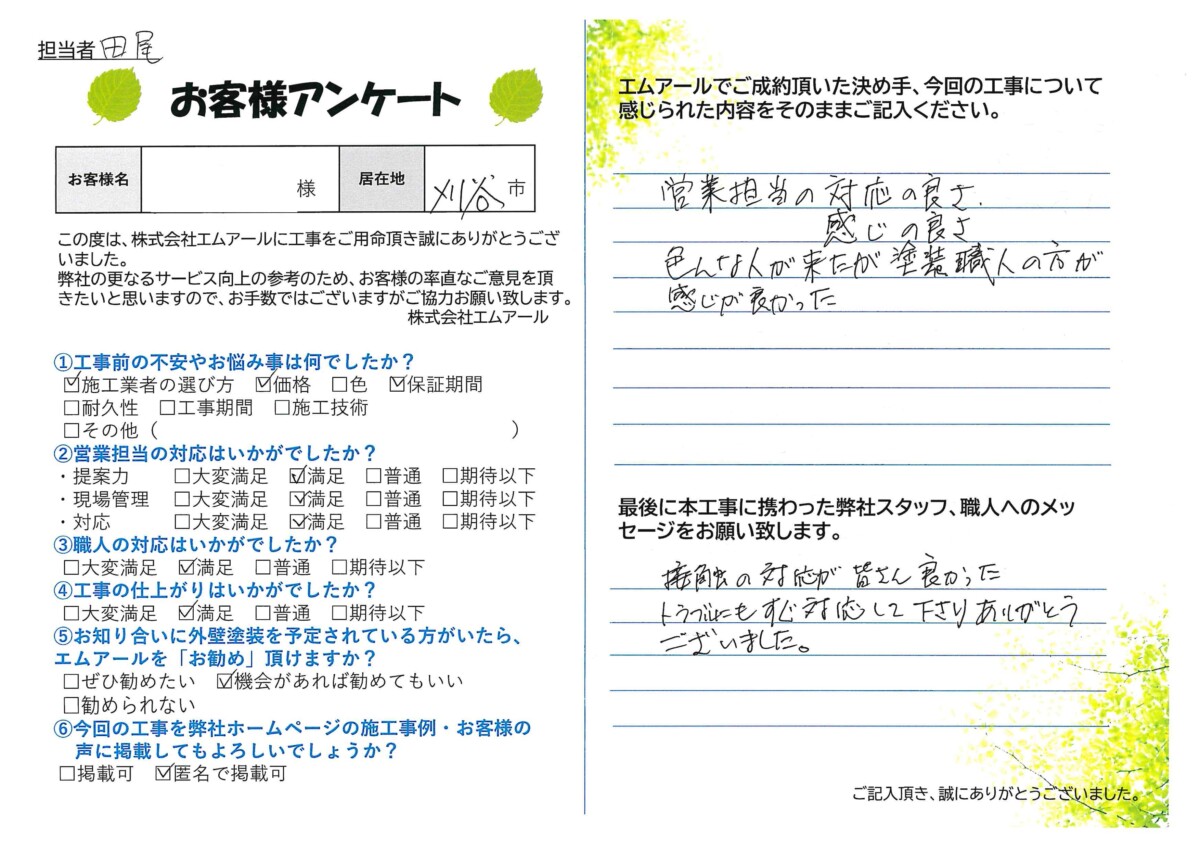 担当者 田尾
お客様アンケート
お客様名 様 居在地 刈谷 市
この度は、株式会社エムアールに工事をご用命頂き誠にありがとうござ
いました。
弊社の更なるサービス向上の参考のため、お客様の率直なご意見を頂
きたいと思いますので、お手数ではございますがご協力お願い致します。
株式会社エムアール
①工事前の不安やお悩み事は何でしたか？
☑施工業者の選び方 ☑価格 □色 ☑保証期間
□耐久性 □工事期間 □施工技術
□その他（ ）
②営業担当の対応はいかがでしたか？
・提案力 □大変満足 ☑満足 □普通 □期待以下
・現場管理 □大変満足 ☑満足 □普通 □期待以下
・対応 □大変満足 ☑満足 □普通 □期待以下
③職人の対応はいかがでしたか？
□大変満足 ☑満足 □普通 □期待以下
④工事の仕上がりはいかがでしたか？
□大変満足 ☑満足 □普通 □期待以下
⑤お知り合いに外壁塗装を予定されている方がいたら、
エムアールを「お勧め」頂けますか？
□ぜひ勧めたい ☑機会があれば勧めてもいい
□勧められない
⑥今回の工事を弊社ホームページの施工事例・お客様の
声に掲載してもよろしいでしょうか？
□掲載可 ☑匿名で掲載可
エムアールでご成約頂いた決め手、今回の工事について
感じられた内容をそのままご記入ください。
営業担当の対応の良さ.
感じの良さ
色んな人が来たが塗装職人の方が
感じが良かった
最後に本工事に携わった弊社スタッフ、職人へのメッ
セージをお願い致します。
の対応が皆さん良かった
トラブルにもすぐ対応して下さりありがとう
ございました。
ご記入頂き、誠にありがとうございました。